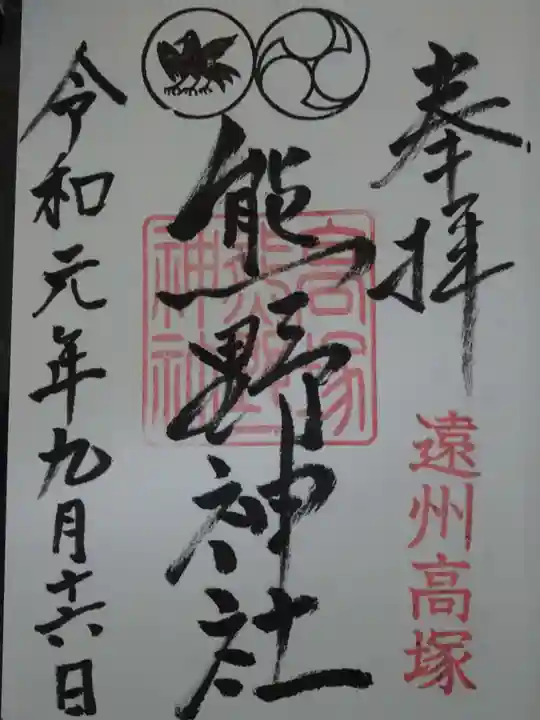 奉拝
遠州高塚
熊野神社
高塚
熊野
神社
令和元年九月十六日